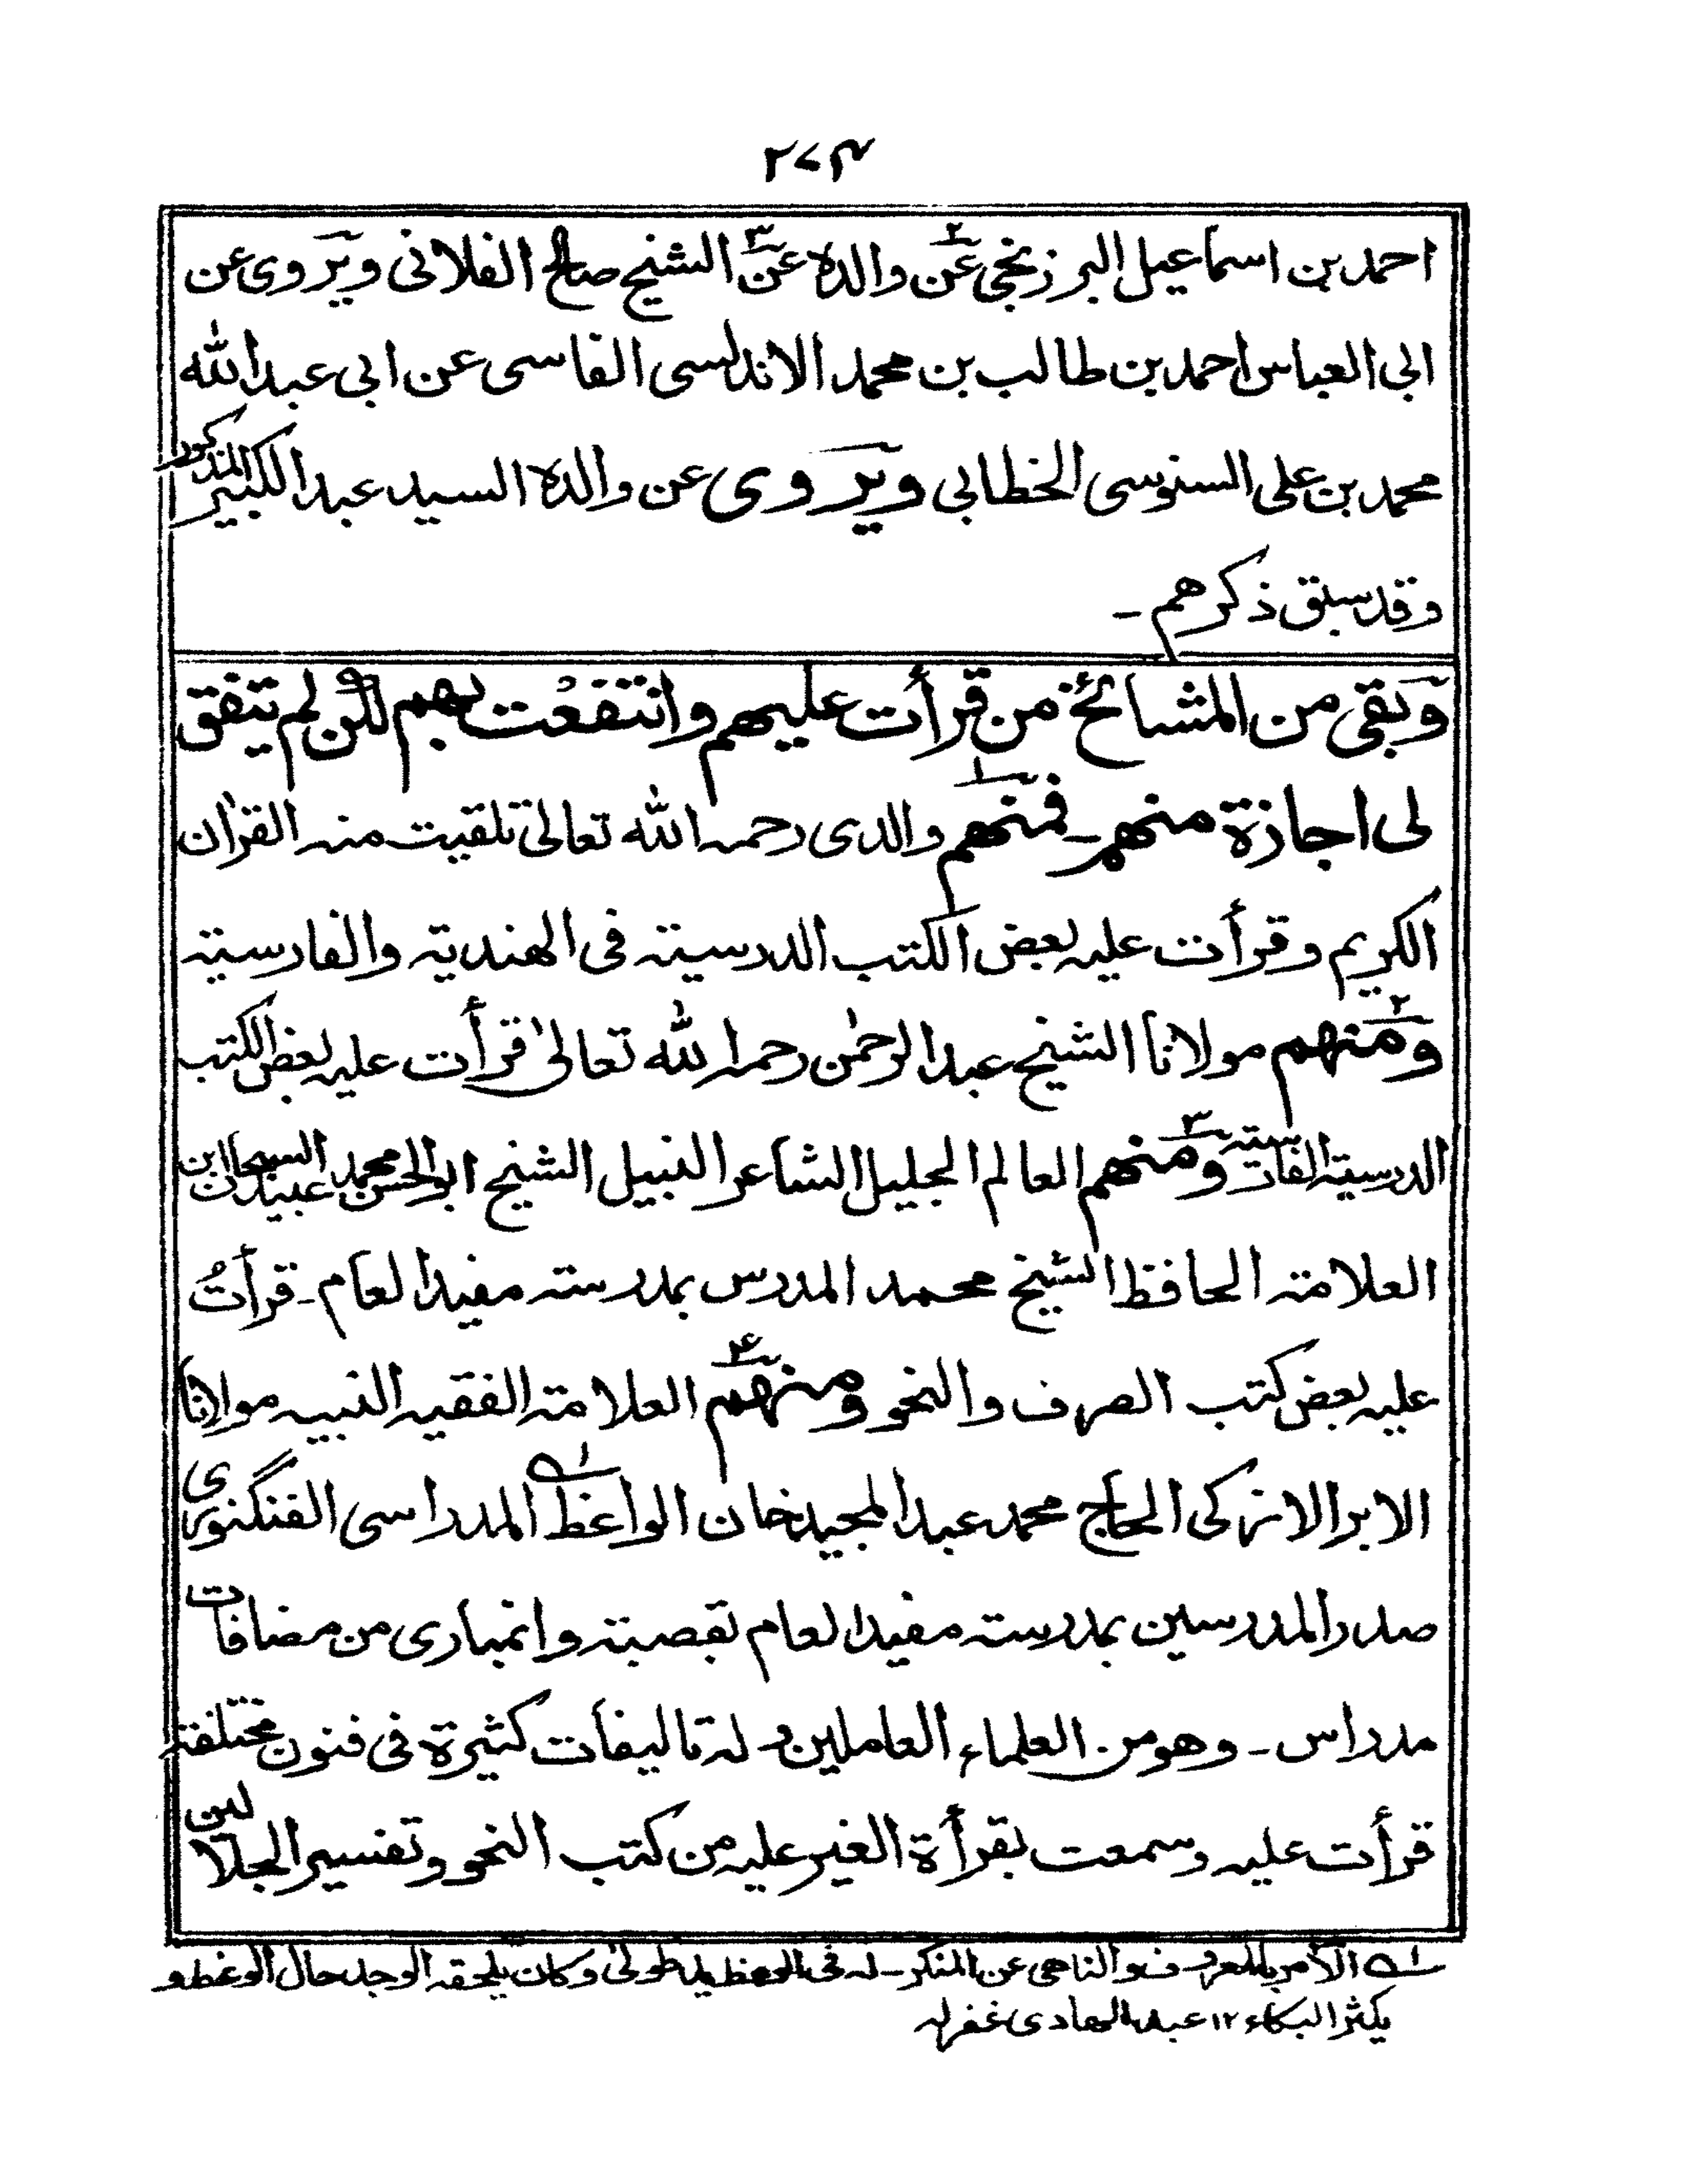 ٢٧٤
احمد بن اسماعيل البرزنجى عن٢ والده عن٣ الشيخ صالح الفلانى ويروى عن
ابى العباس احمد بن طالب بن محمد الاندلسى الفاسى عن ابى عبد الله
محمد بن على السنوسى الخطابى ويروى عن والده السيد عبد الكبير المذكور
وقد سبق ذكرهم -
وبقى من المشائخ من قرأت عليهم وانتفعت بهم لكن لم تتفق
لى اجازة منهم - فمنهم١ والدى رحمه الله تعالى تلقيت منه القرآن
الكريم وقرأت عليه بعض الكتب الدرسية فى الهندية والفارسية
ومنهم٢ مولانا الشيخ عبد الرحمٰن رحمه الله تعالىٰ قرأت عليه بعض الكتب
الدرسية الفارسية ومنهم٣ العالم الجليل الشاعر النبيل الشيخ ابو الحسن محمد عبيد السبحان ابن
العلامة الحافظ الشيخ محمد المدرس بمدرسة مفيد العام - قرأتُ
عليه بعض كتب الصرف والنحو ومنهم٤ العلامة الفقيه النبيه مولانا
الابر الازكى الحاج محمد عبد المجيد خان الواعظ١ المدراسى الفنگنورى
صدر المدرسين بمدرسة مفيد العام بقصبة وانمبارى من مضافات
مدراس - وهو من العلماء العاملين وله تاليفات كثيرة فى فنون مختلفة
قرأت عليه وسمعت بقرأة الغير عليه من كتب النحو وتفسير الجلالين
١ الآمر بالمعروف والناهى عن المنكر - له فى الوعظ يد طولىٰ وكان يلحقه الوجد حال الوعظ و
يكثر البكاء ١٢ عبد الهادى غفرله